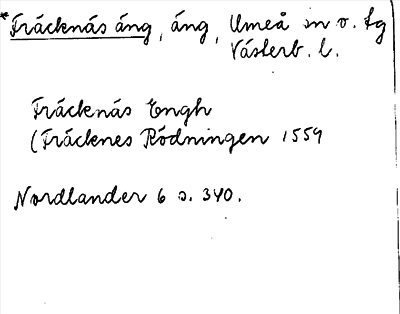 *Fräcknäs äng, äng, Umeå sn o. tg
Västerb. l.
Fräcknäs Engh
(Fräcknes Rödningen 1559
Nordlander 6 s. 340.